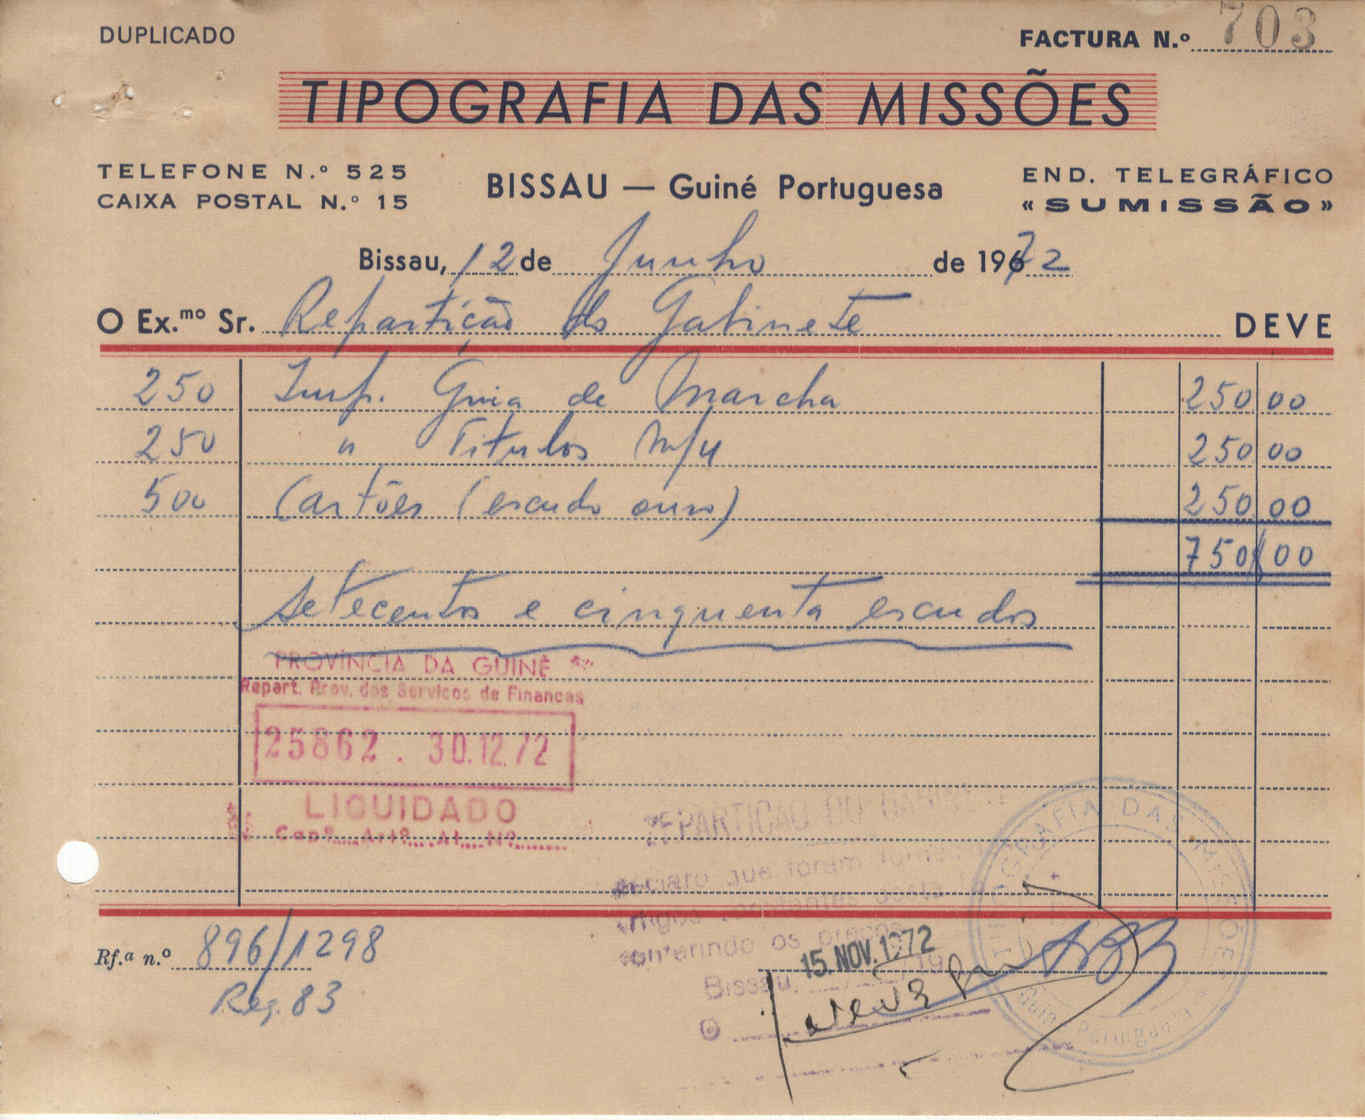 DUPLICADO
FACTURA N.º 703
TIPOGRAFIA DAS MISSÕES
TELEFONE N.º 525
CAIXA POSTAL N.º 15
BISSAU — Guiné Portuguesa
END. TELEGRÁFICO
«SUMISSÃO»
Bissau, 12 de Junho de 1972
O Ex.mo Sr. Repartição do Gabinete DEVE
250 Imp. Guia de Marcha 250 00
250 " Titulos M/4 250 00
500 Cartões (escudo ouro) 250 00
750 00
Setecentos e cinquenta escudos
PROVÍNCIA DA GUINÉ
Repart. Prov. dos Serviços de Finanças
25862 . 30.12.72
LIQUIDADO
Cap.º Art.º Al. N.º
REPARTIÇÃO DO GABINETE
Declaro que foram
artigos constantes desta
conferindo os preços
Bissau, 19
15. NOV. 1972
O
TIPOGRAFIA DAS MISSÕES
Guiné Portuguesa
Rf.ª n.º 896/1298
Reg. 83